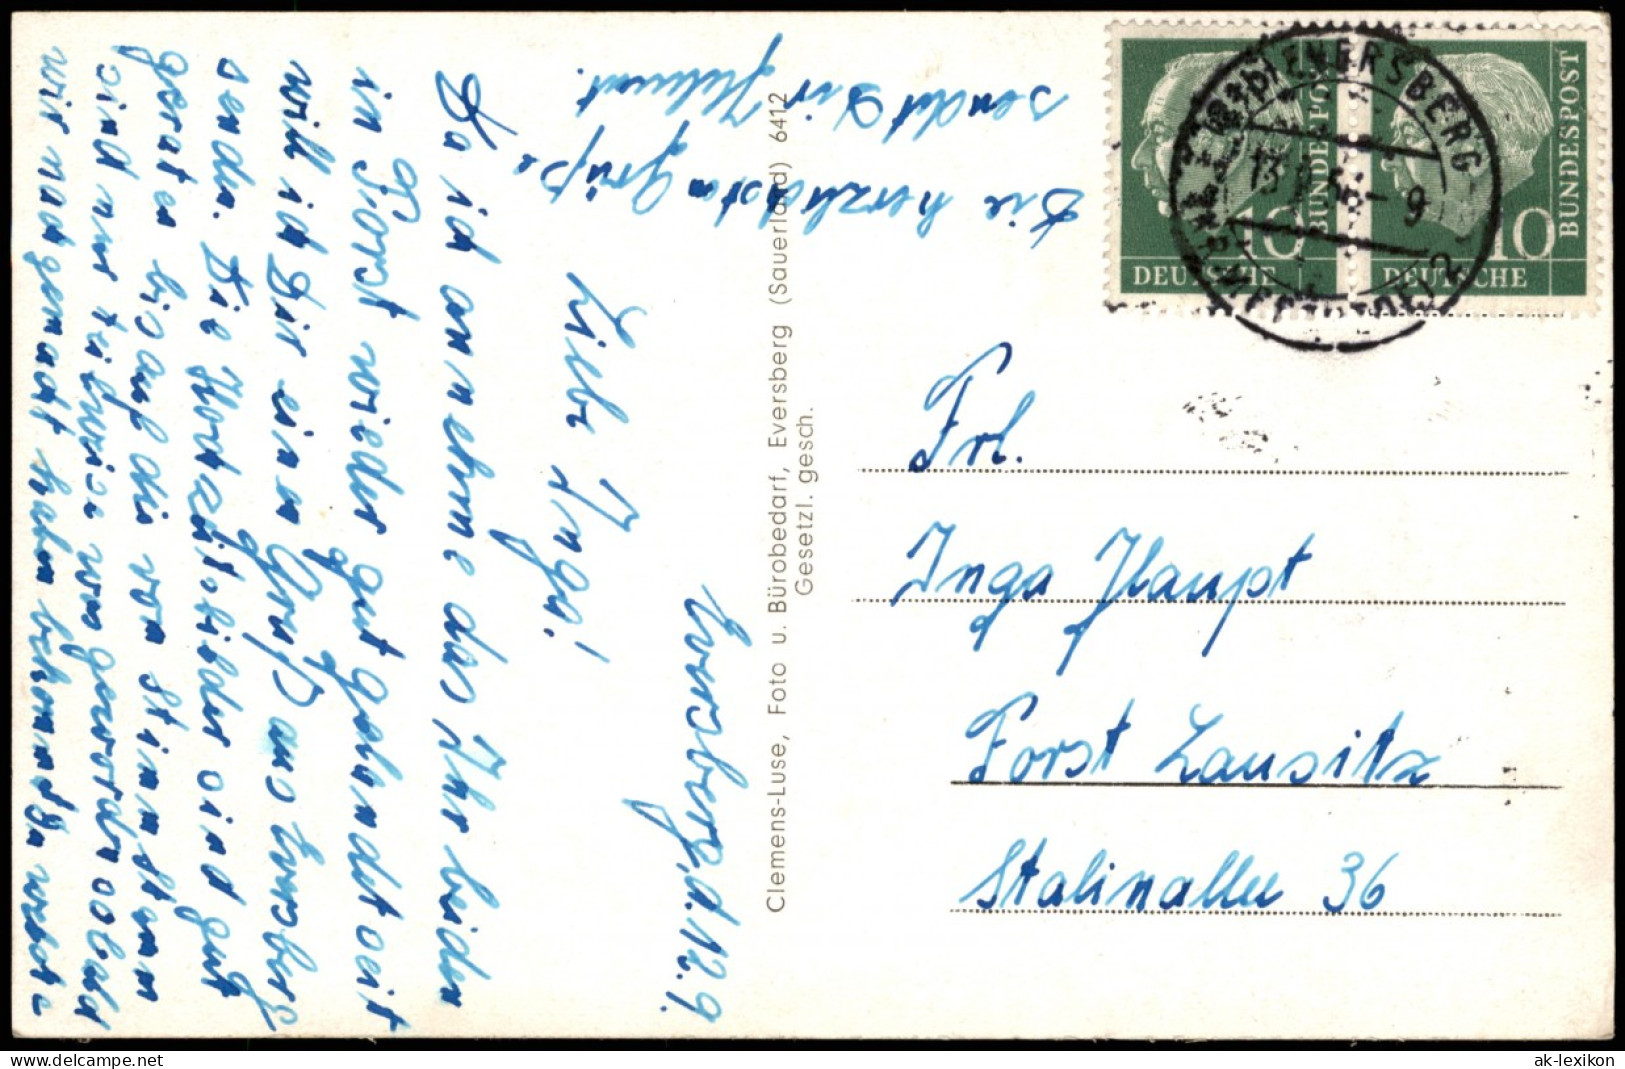 Eversberg, d. 12.9.
Liebe Inga!
Da ich annehme das Ihr beiden
in Forst wieder gut gelandet seit
will ich Dir einen Gruß aus Eversberg
senden. Die Hochzeitsbilder sind gut
geraten bis auf die von
sind nur teilweise was geworden sobald
wir nachgemacht haben bekommst Du welche
Die herzlichsten Grüße
sendet Dir Helmut.
Clemens-Luse, Foto u. Bürobedarf, Eversberg (Sauerland) 6412
Gesetzl. gesch.
DEUTSCHE BUNDESPOST 10
DEUTSCHE BUNDESPOST 10
EVERSBERG
13. 9
Frl.
Inga Haupt
Forst Lausitz
Stalinallee 36
ak-lexikon